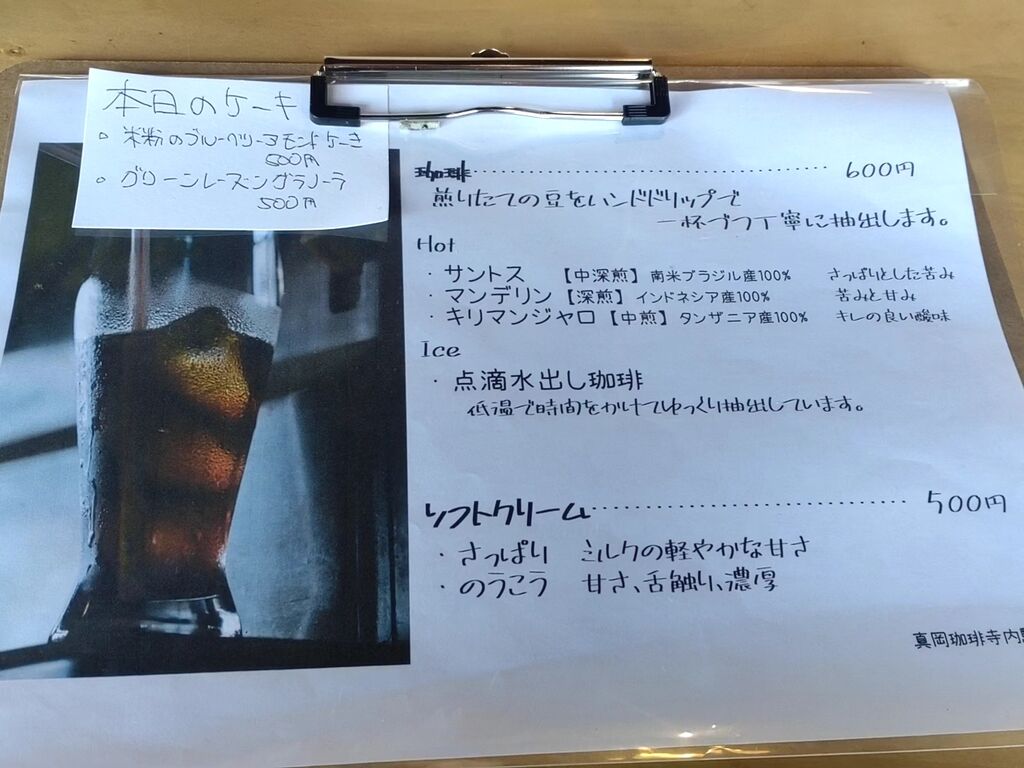 本日のケーキ
・米粉のブルーベリーアモンドケーキ
500円
・グリーンレーズングラノーラ
500円
珈琲 600円
煎りたての豆をハンドドリップで
一杯づつ丁寧に抽出します。
Hot
・サントス 【中深煎】 南米ブラジル産100% さっぱりとした苦み
・マンデリン 【深煎】 インドネシア産100% 苦みと甘み
・キリマンジャロ 【中煎】 タンザニア産100% キレの良い酸味
Ice
・点滴水出し珈琲
低温で時間をかけてゆっくり抽出しています。
ソフトクリーム 500円
・さっぱり ミルクの軽やかな甘さ
・のうこう 甘さ、舌触り、濃厚
真岡珈琲寺内